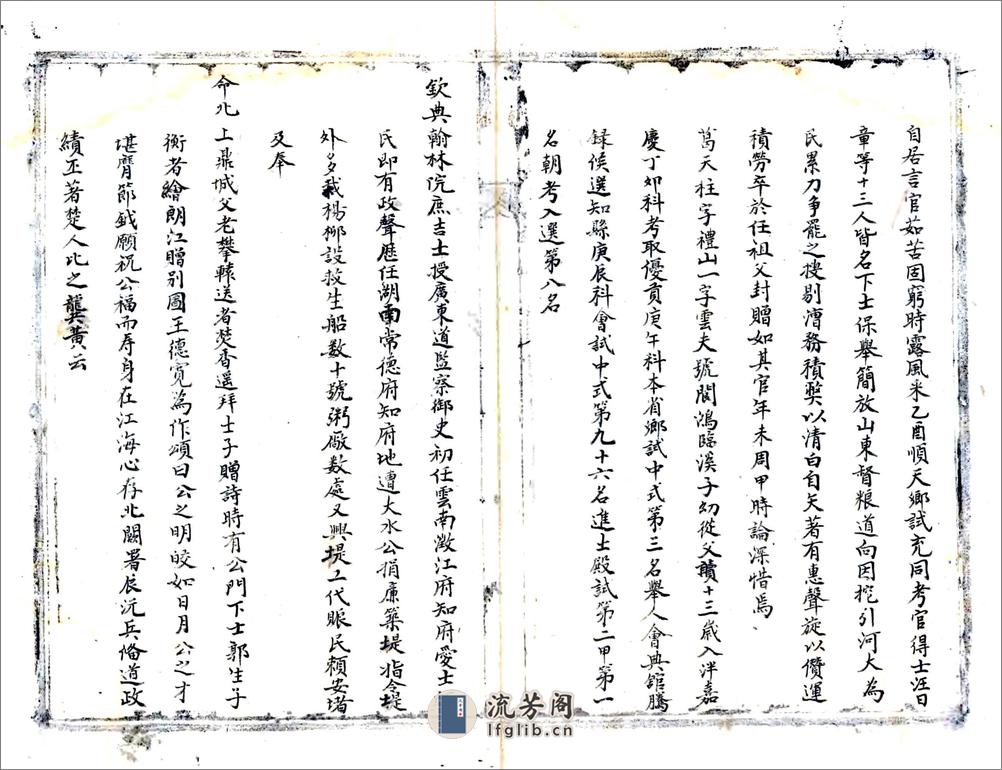 自居言官茹苦固窮時露風采乙酉順天鄉試充同考官得士汪曰
章等十三人皆名下士保舉簡放山東督粮道向因挖引河大為
民累力争罷之搜剔漕務積獘以清白自矢著有惠聲旋以儹運
積勞卒於任祖父封贈如其官年未周甲時論深惜焉
萬天柱字禮山一字雲夫號閬鴻臨溪子幼從父讀十三歲入泮嘉
慶丁卯科考取優貢庚午科本省鄉試中式第三名舉人會典舘騰
録候選知縣庚辰科會試中式第九十六名進士殿試第二甲第一
名朝考入選第八名
欽典翰林院庶吉士授廣東道監察御史初任雲南澂江府知府愛士
民即有政聲歷任湖南常德府知府地遭大水公捐廉築堤指令堤
外多栽楊柳設救生船数十號粥廠数處又興堤工代賑民頼安堵
及奉
命北上鼎城父老攀轅送者焚香遥拜士子贈詩時有公門下士郭生子
衡者繪朗江贈别圖王德寛為作頌曰公之明皎如日月公之才
堪膺節鉞願祝公福而寿身在江海心存北闕署辰沅兵俻道政
績丕著楚人比之龔黄云
流芳阁
lfglib.cn